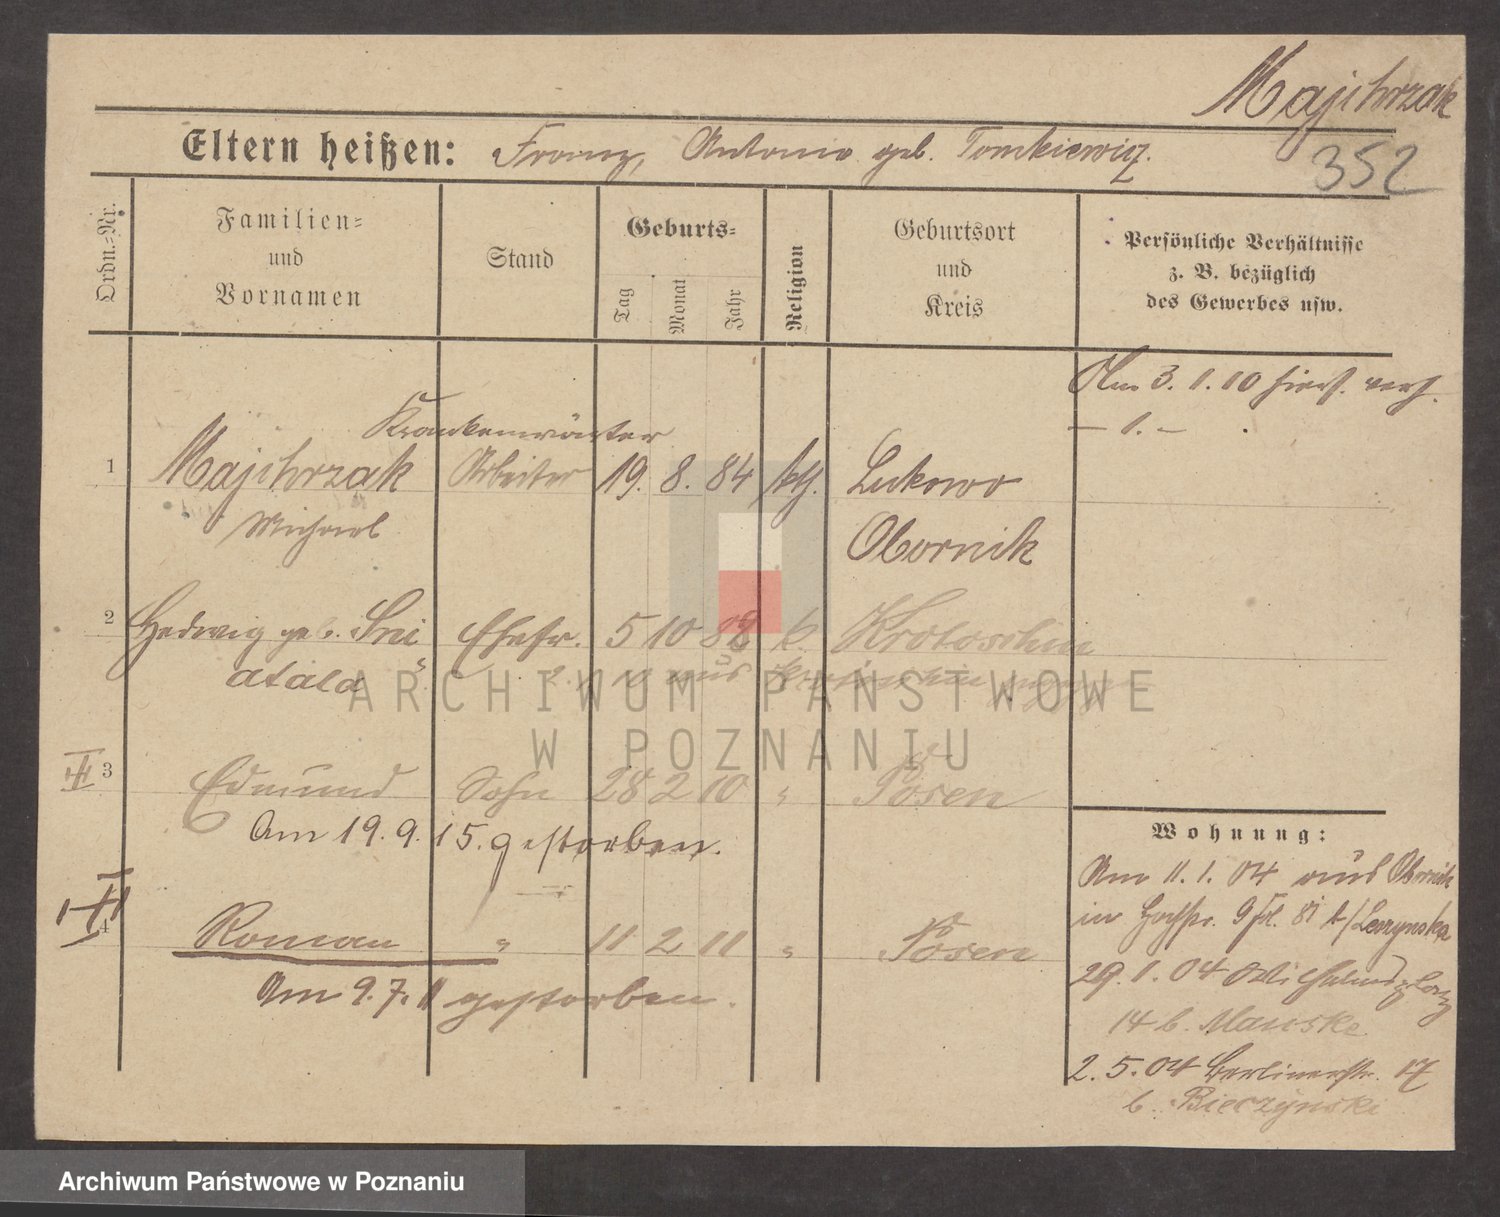 Majchrzak
352
Eltern heißen: Franz, Antonie geb. Tomkiewicz.
Ordn.=Nr.
Familien=
und
Vornamen
Stand
Geburts=
Tag
Monat
Jahr
Religion
Geburtsort
und
Kreis
Persönliche Verhältnisse
z. B. bezüglich
des Gewerbes usw.
Am 3. 1. 10 hiers. verh.
– 1. –
Krankenwärter
1 Majchrzak Arbeiter 19. 8. 84 kth. Lukowo
Michael Obornik
2 Hedwig geb. Sni Ehefr. 5 10 82 k. Krotoschin
atala
3 Edmund Sohn 28 2 10 " Posen
Am 19. 9. 15. gestorben.
4 Roman " 11 2 11 " Posen
Am 9. 7. 11 gestorben.
Wohnung:
Am 11. 1. 04 aus Obornik
in 9
29. 1. 04 Wilhelmsplatz
14 b. Manske
2. 5. 04 Berlinerstr. 17
b. Bieczynski
ARCHIWUM PAŃSTWOWE
W POZNANIU
Archiwum Państwowe w Poznaniu